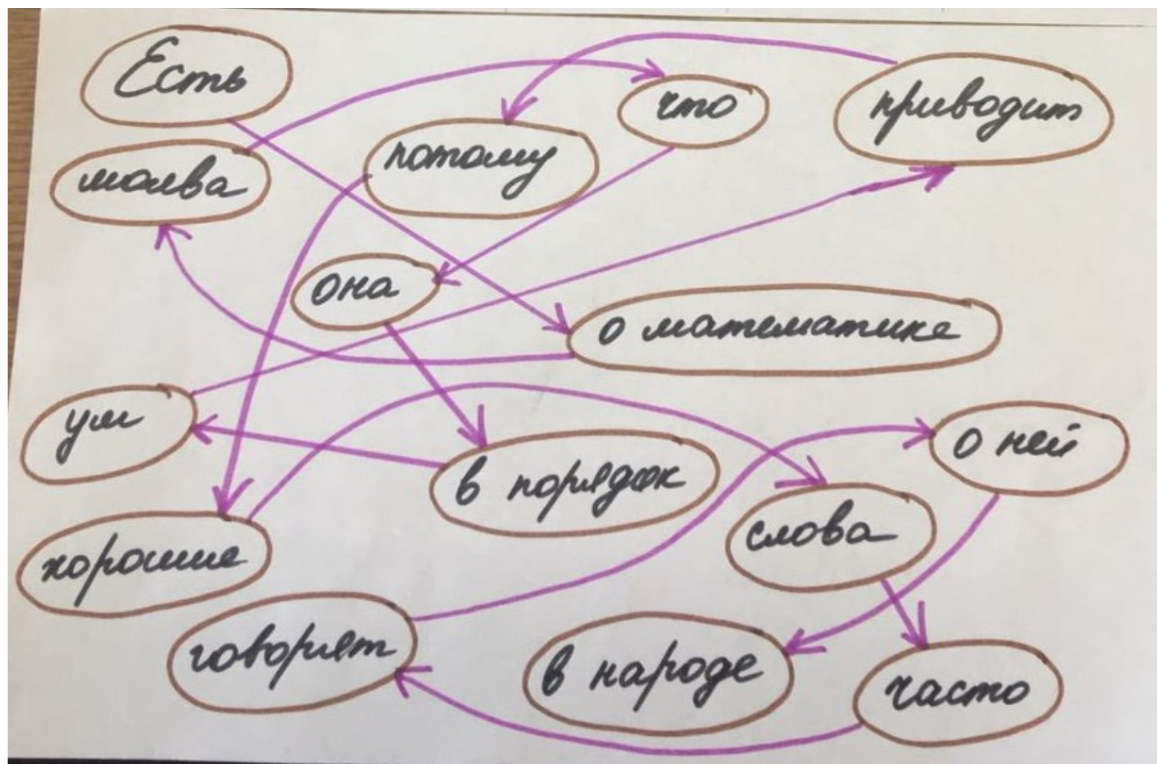 Есть
что
приводит
молва
потому
она
о математике
ум
о ней
в порядок
слова
хорошие
говорят
в народе
часто